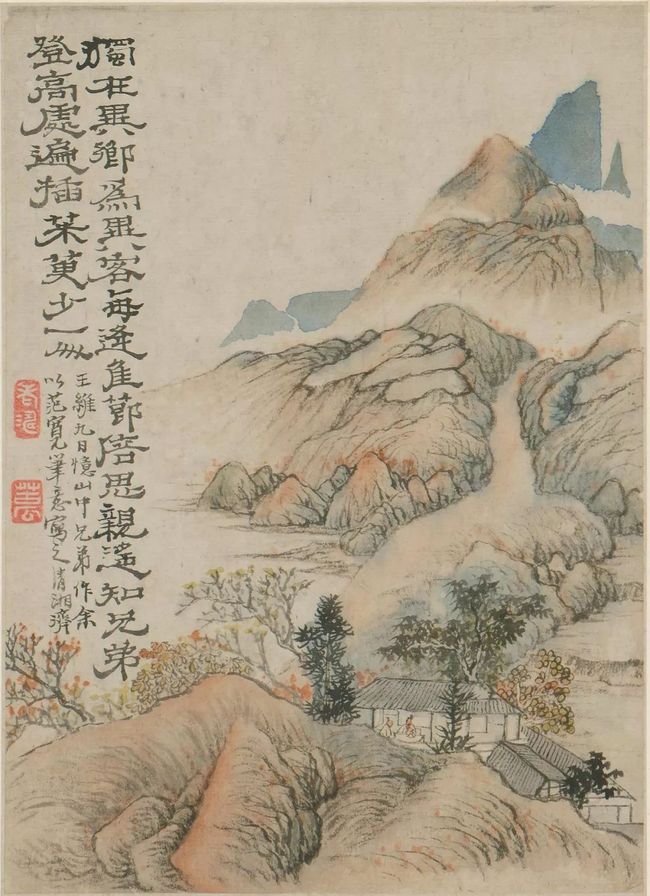 獨在異鄉爲異客每逢佳節倍思親遙知兄弟
登高處遍插茱萸少一人
王維九日憶山中兄弟作余
以范寬筆意寫之清湘濟